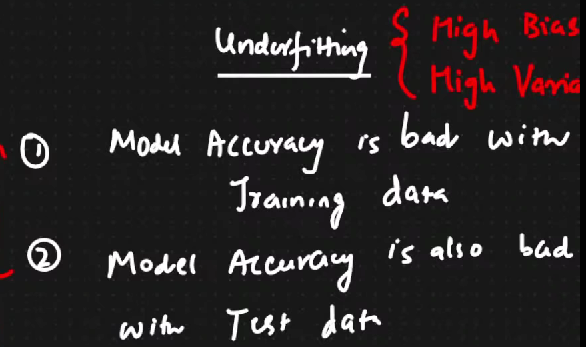 Underfitting { High Bias
High Varia
① Model Accuracy is bad with
Training data
② Model Accuracy is also bad
with Test data